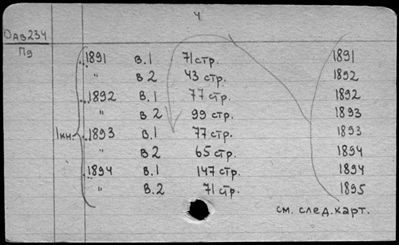 4
Оав234
Пд
1891 в.1 71 стр. 1891
" в2 43 стр. 1892
1892 в.1 77 стр. 1892
" в2 99 стр. 1893
1кн. 1893 в.1 77 стр. 1893
" в2 65 стр. 1894
1894 в.1 147 стр. 1894
" в.2 71 стр. 1895
см. след.карт.